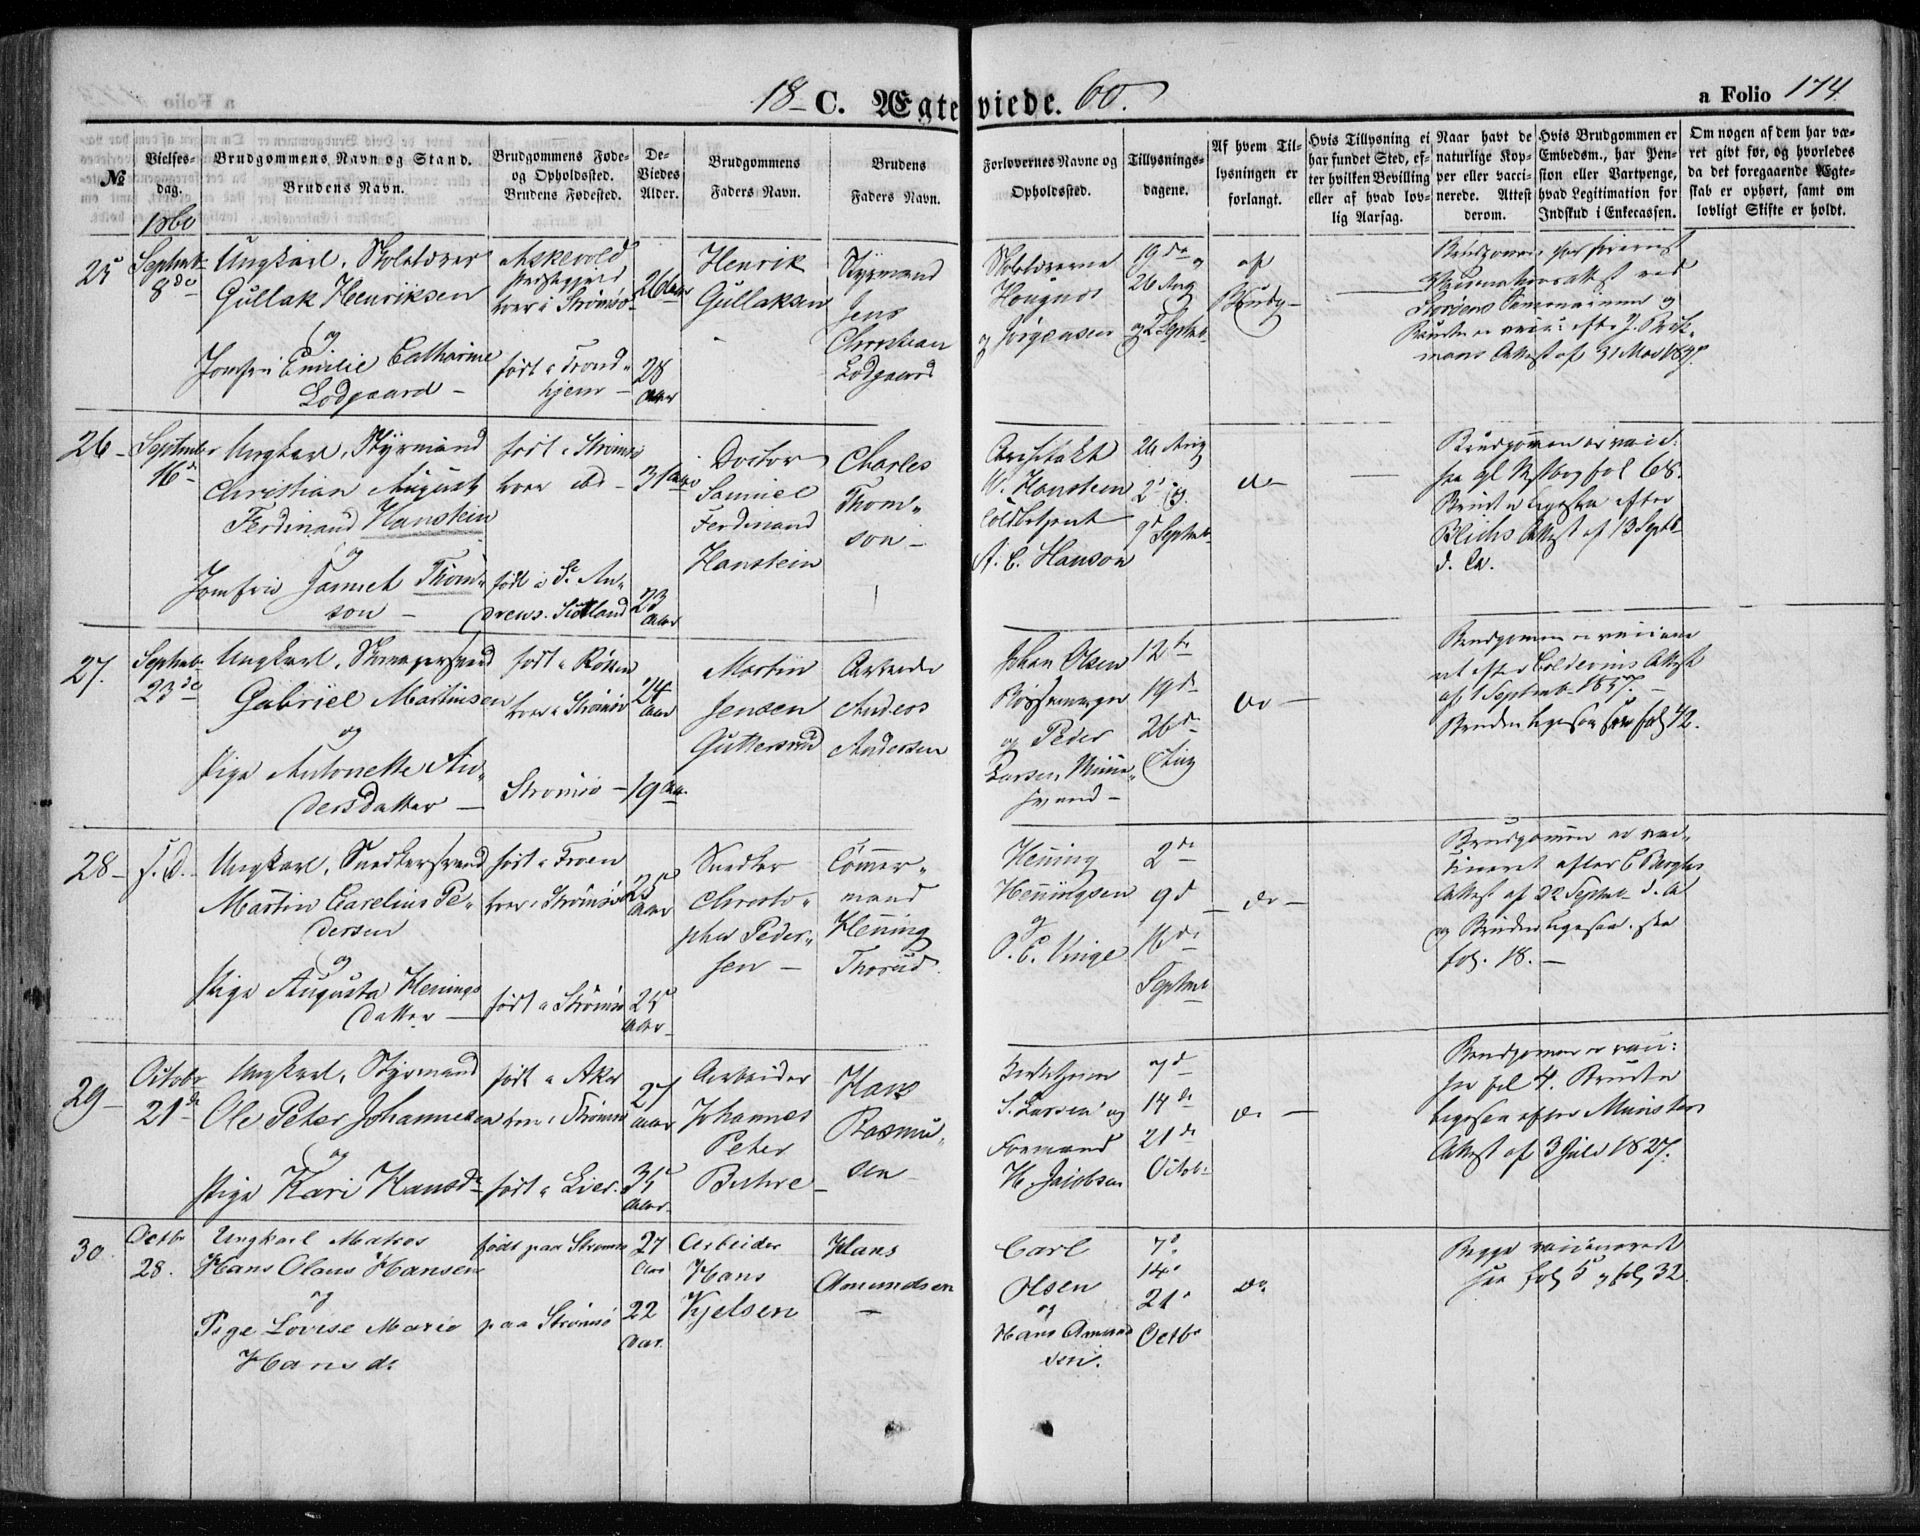 18 C. Ægteviede. 60.
a Folio 174.
No
Vielses-dag.
Brudgommens Navn og Stand. Brudens Navn.
Brudgommens Føde- og Opholdssted. Brudens Fødested.
De Viedes Alder.
Brudgommens Faders Navn.
Brudens Faders Navn.
Forlovernes Navne og Opholdssted.
Tillysnings-dagene.
Af hvem Tillysningen er forlangt.
Hvis Tillysning ei har fundet Sted, efter hvilken Bevilling eller af hvad lovlig Aarsag.
Naar havt de naturlige Kopper eller vaccinerede. Attest derom.
Hvis Brudgommen er Embedsm., har Pension eller Vartpenge, hvad Legitimation for Indskud i Enkecassen.
Om nogen af dem har været givt før, og hvorledes da det foregaaende Ægteskab er ophørt, samt om lovligt Skifte er holdt.
1860
25
Septembr
8de
Ungkarl, Skolelærer
Gullak Henriksen
og
Jomfru Emilie Catharine
Lodgaard
Askevold
Præstegjeld
boer i Strømsø
født i Trond-
hjem
26 aar
28
aar
Henrik
Gullaksen
Styrmand
Jens
Christian
Lodgaard
Skolelærerne
Hougnæs
og Jørgensen
19de
26 Aug
og 2 Septembr
af
Brudg
26
September
16d
Ungkarl, Styrmand
Christian August
Ferdinand Hanstein
og
Jomfru Jamiet Thom-
son
født i Strømsø
boer ibd
født i St. An-
drews. Scotland
31 aar
23
aar
Doctor
Samuel
Ferdinand
Hanstein
Charles
Thom-
son
Architekt
W. Hanstein
Toldbetjent
A. C. Hanson
26 Aug
2 og
9d Septembr
do
Brudgommen er vacc:
see gl Msbog fol 68.
Bruden ligesaa efter
Blichs Attest af 13 Septb
d. A.
27.
Septembr
23de
Ungkarl, Skomagersvend
Gabriel Martinsen
og
Pige Antonette An-
dersdatter
født i Røken
boer i Strømsø
Strømsø
24
aar
19 aar
Martin
Jensen
Guttersrud
Arbeider
Anders
Andersen
Johan Olsen
og Peder
Larsen
12te
19de
26de
Aug
do
Brudgommen er vaccine
ret efter Colderins Attest
af 1 Septemb 1837.
Bruden ligesaa see fol 42.
28
s. d.
Ungkarl, Snedkersvend
Martin Carelius Pe-
dersen
og
Pige Augusta Hennings
datter
født i Froen
boer i Strømsø
født i Strømsø
25
aar
25
aar
Snedker
Christo-
pher Peder-
sen
Tømmer-
mand
Henning
Thorud
Henning
Henningsen
og
O. C. Vinge
2de
9d
16de
Septembr
do
Brudgommen er vac-
cineret efter C Borghs
Attest af 22 Septembr d. A
og Bruden ligesaa. see
fol. 18.
29
Octobr
21de
Ungkarl, Styrmand
Ole Peter Johannesen
og
Pige Kari Hansdr
født i Aker
boer i Strømsø
født i Lier.
27
aar
35
aar
Arbeider
Johannes
Peter
Buhre
Hans
Rasmu-
sen
S. Larsen og
Formand
H. Jacobsen
7d
14de
21de
Octobr
do
Brudgommen er vacc:
see fol 4. Bruden
ligesaa efter Munsters
Attest af 3 Juli 1827.
30
Octbr
28.
Ungkarl Matros
Hans Olaus Hansen
og
Pige Lovise Marie
Hansdr
født paa Strømsø
paa Strømsø
27
Aar
22
Aar.
Arbeider
Hans
Kjelsen
Hans
Amundsen
Carl
Olsen
og
Hans Amund
sen.
7d
14d
21d
Octbr
do
Begge vaccinerede
see fol 5 og fol 32.